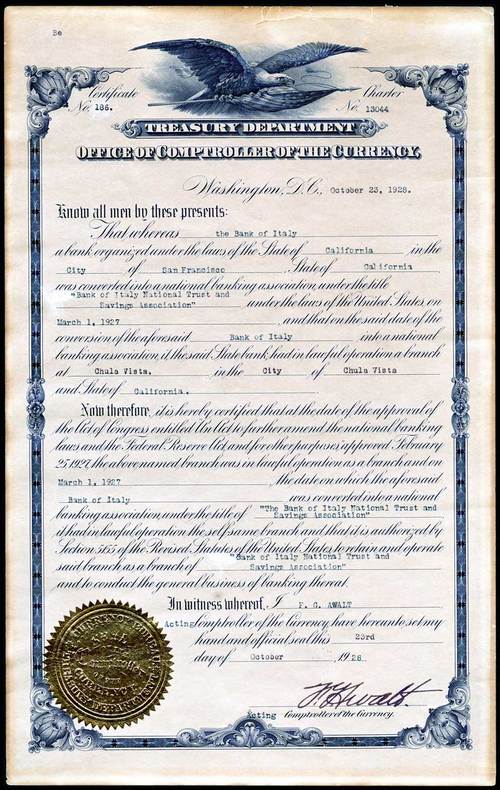 Be
Certificate
No. 186.
Charter
No. 13044
TREASURY DEPARTMENT
OFFICE OF COMPTROLLER OF THE CURRENCY,
Washington, D.C., October 23, 1928.
Know all men by these presents:
That whereas the Bank of Italy
a bank organized under the laws of the State of California in the
City of San Francisco , State of California
was converted into a national banking association, under the title
"Bank of Italy National Trust and
Savings Association" under the laws of the United States, on
March 1, 1927 , and that on the said date of the
conversion of the aforesaid Bank of Italy into a national
banking association, it the said State bank had in lawful operation a branch
at Chula Vista, in the City of Chula Vista
and State of California.
Now therefore, it is hereby certified that at the date of the approval of
the Act of Congress entitled An Act to further amend the national banking
laws and the Federal Reserve Act, and for other purposes, approved February
25, 1927, the above named branch was in lawful operation as a branch and on
March 1, 1927 , the date on which the aforesaid
Bank of Italy was converted into a national
banking association, under the title of "The Bank of Italy National Trust and
Savings Association"
it had in lawful operation the self same branch and that it is authorized by
Section 5155 of the Revised Statutes of the United States to retain and operate
said branch as a branch of "Bank of Italy National Trust and
Savings Association"
and to conduct the general business of banking thereat.
In witness whereof, I F. G. AWALT
Acting Comptroller of the Currency, have hereunto set my
hand and official seal this 23rd
day of October , 1928
F G Awalt.
Acting Comptroller of the Currency.